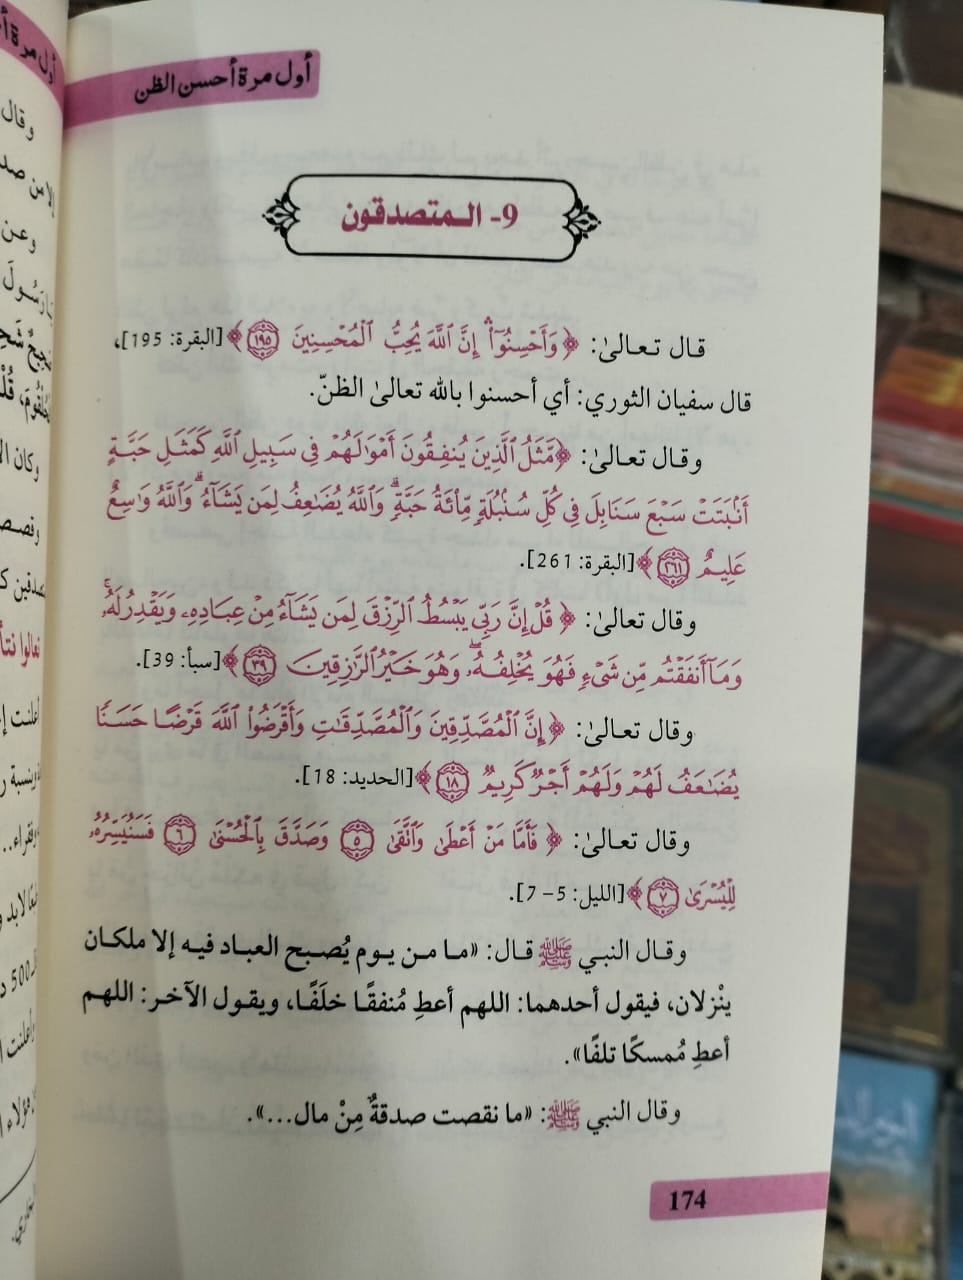 أول مرة أحسن الظن
9- المتصدقون
قال تعالىٰ: ﴿وَأَحْسِنُوٓا۟ إِنَّ ٱللَّهَ يُحِبُّ ٱلْمُحْسِنِينَ ١٩٥﴾ [البقرة: 195]،
قال سفيان الثوري: أي أحسنوا بالله تعالىٰ الظنّ.
وقال تعالىٰ: ﴿مَّثَلُ ٱلَّذِينَ يُنفِقُونَ أَمْوَٰلَهُمْ فِى سَبِيلِ ٱللَّهِ كَمَثَلِ حَبَّةٍ
أَنۢبَتَتْ سَبْعَ سَنَابِلَ فِى كُلِّ سُنۢبُلَةٍ مِّا۟ئَةُ حَبَّةٍ ۗ وَٱللَّهُ يُضَٰعِفُ لِمَن يَشَآءُ ۗ وَٱللَّهُ وَٰسِعٌ
عَلِيمٌ ٢٦١﴾ [البقرة: 261].
وقال تعالىٰ: ﴿قُلْ إِنَّ رَبِّى يَبْسُطُ ٱلرِّزْقَ لِمَن يَشَآءُ مِنْ عِبَادِهِۦ وَيَقْدِرُ لَهُۥ ۚ
وَمَآ أَنفَقْتُم مِّن شَىْءٍ فَهُوَ يُخْلِفُهُۥ ۖ وَهُوَ خَيْرُ ٱلرَّٰزِقِينَ ٣٩﴾ [سبأ: 39].
وقال تعالىٰ: ﴿إِنَّ ٱلْمُصَّدِّقِينَ وَٱلْمُصَّدِّقَٰتِ وَأَقْرَضُوا۟ ٱللَّهَ قَرْضًا حَسَنًا
يُضَٰعَفُ لَهُمْ وَلَهُمْ أَجْرٌ كَرِيمٌ ١٨﴾ [الحديد: 18].
وقال تعالىٰ: ﴿فَأَمَّا مَنْ أَعْطَىٰ وَٱتَّقَىٰ ٥ وَصَدَّقَ بِٱلْحُسْنَىٰ ٦ فَسَنُيَسِّرُهُۥ
لِلْيُسْرَىٰ ٧﴾ [الليل: 5- 7].
وقال النبي ﷺ قال: «ما من يوم يُصبح العباد فيه إلا ملكان
ينْزلان، فيقول أحدهما: اللهم أعطِ مُنفقًا خلَفًا، ويقول الآخر: اللهم
أعطِ مُمسكًا تلفًا».
وقال النبي ﷺ: «ما نقصت صدقةٌ مِنْ مال...».
174